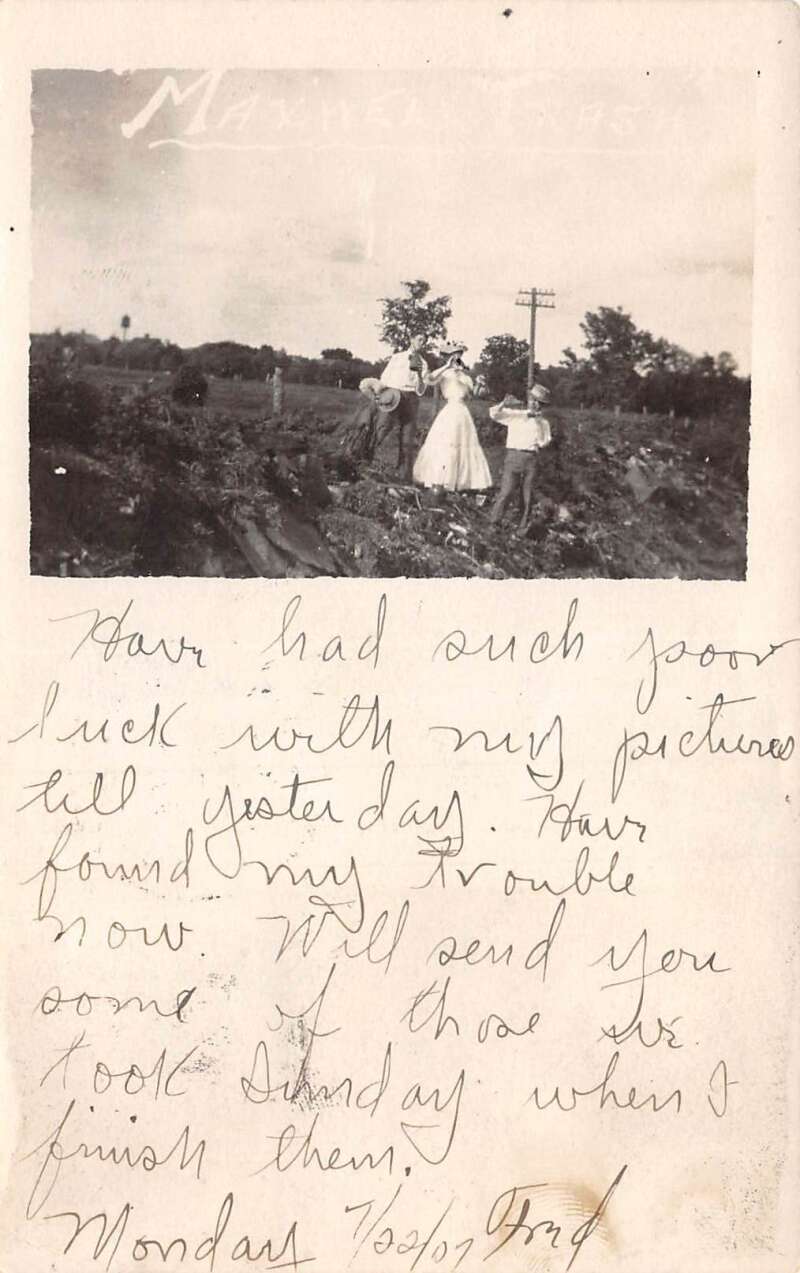 Maxwell Texas
Have had such poor
luck with my pictures
till yesterday. Have
found my trouble
now. Will send you
some of those we
took Sunday when I
finish them.
Monday 7/22/07 Fred